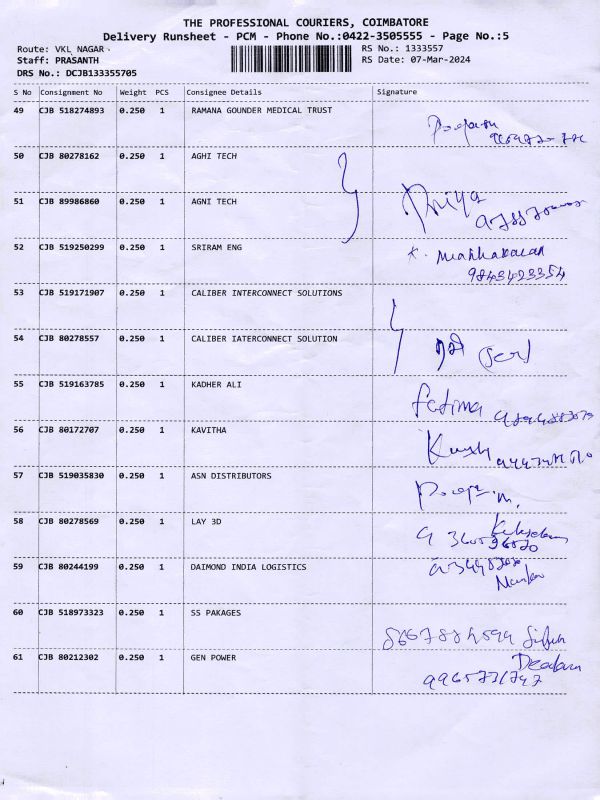 THE PROFESSIONAL COURIERS, COIMBATORE
Delivery Runsheet - PCM - Phone No.:0422-3505555 - Page No.:5
Route: VKL NAGAR RS No.: 1333557
Staff: PRASANTH RS Date: 07-Mar-2024
DRS No.: DCJB133355705
S No Consignment No Weight PCS Consignee Details Signature
49 CJB 518274893 0.250 1 RAMANA GOUNDER MEDICAL TRUST
50 CJB 80278162 0.250 1 AGHI TECH
51 CJB 89986860 0.250 1 AGNI TECH Priya
52 CJB 519250299 0.250 1 SRIRAM ENG
9843423354
53 CJB 519171907 0.250 1 CALIBER INTERCONNECT SOLUTIONS
54 CJB 80278557 0.250 1 CALIBER IATERCONNECT SOLUTION
55 CJB 519163785 0.250 1 KADHER ALI Fatima
56 CJB 80172707 0.250 1 KAVITHA
57 CJB 519035830 0.250 1 ASN DISTRIBUTORS
58 CJB 80278569 0.250 1 LAY 3D
59 CJB 80244199 0.250 1 DAIMOND INDIA LOGISTICS
60 CJB 518973323 0.250 1 SS PAKAGES
61 CJB 80212302 0.250 1 GEN POWER